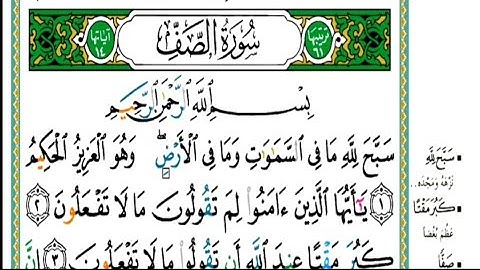 ترتيبها ٦١ سُورَةُ الصَّفِّ آياتها ١٤
بِسْمِ اللَّهِ الرَّحْمَٰنِ الرَّحِيمِ
سَبَّحَ لِلَّهِ مَا فِي السَّمَاوَاتِ وَمَا فِي الْأَرْضِ ۖ وَهُوَ الْعَزِيزُ الْحَكِيمُ
﴿١﴾ يَا أَيُّهَا الَّذِينَ ءَامَنُوا لِمَ تَقُولُونَ مَا لَا تَفْعَلُونَ ﴿٢﴾
كَبُرَ مَقْتًا عِندَ اللَّهِ أَن تَقُولُوا مَا لَا تَفْعَلُونَ ﴿٣﴾ إِنَّ
سَبَّحَ لِلَّهِ
نَزَّهَهُ وَمَجَّدَهُ..
كَبُرَ مَقْتًا
عَظُمَ بُغْضًا
صَفًّا